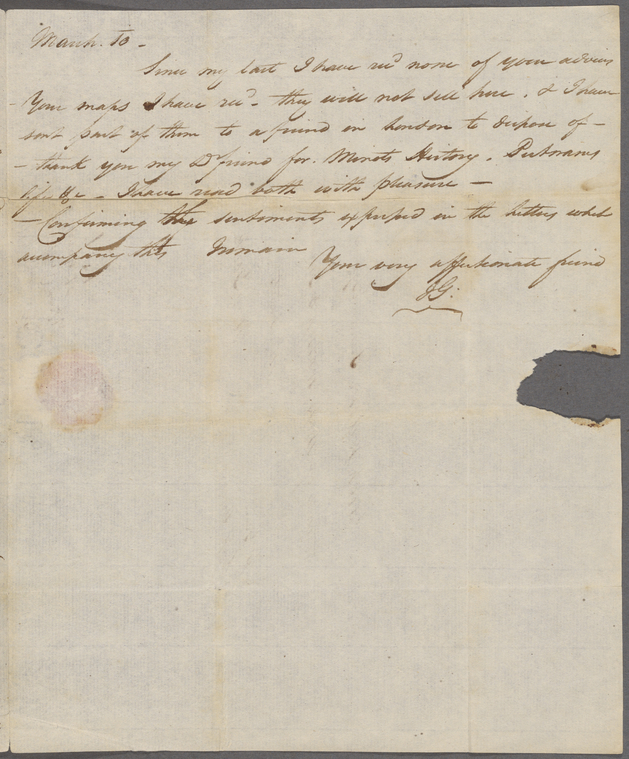 March. 10 -
Since my last I have recd none of your advices
Your maps I have recd - they will not sell here. & I have
sent part of them to a friend in London to dispose of -
- thank you my Dr friend for. Minots History. Putnams
life &c - I have read both with pleasure -
- Confirming the sentiments expressed in the letters which
accompany this I remain
Your very affectionate friend
JG.